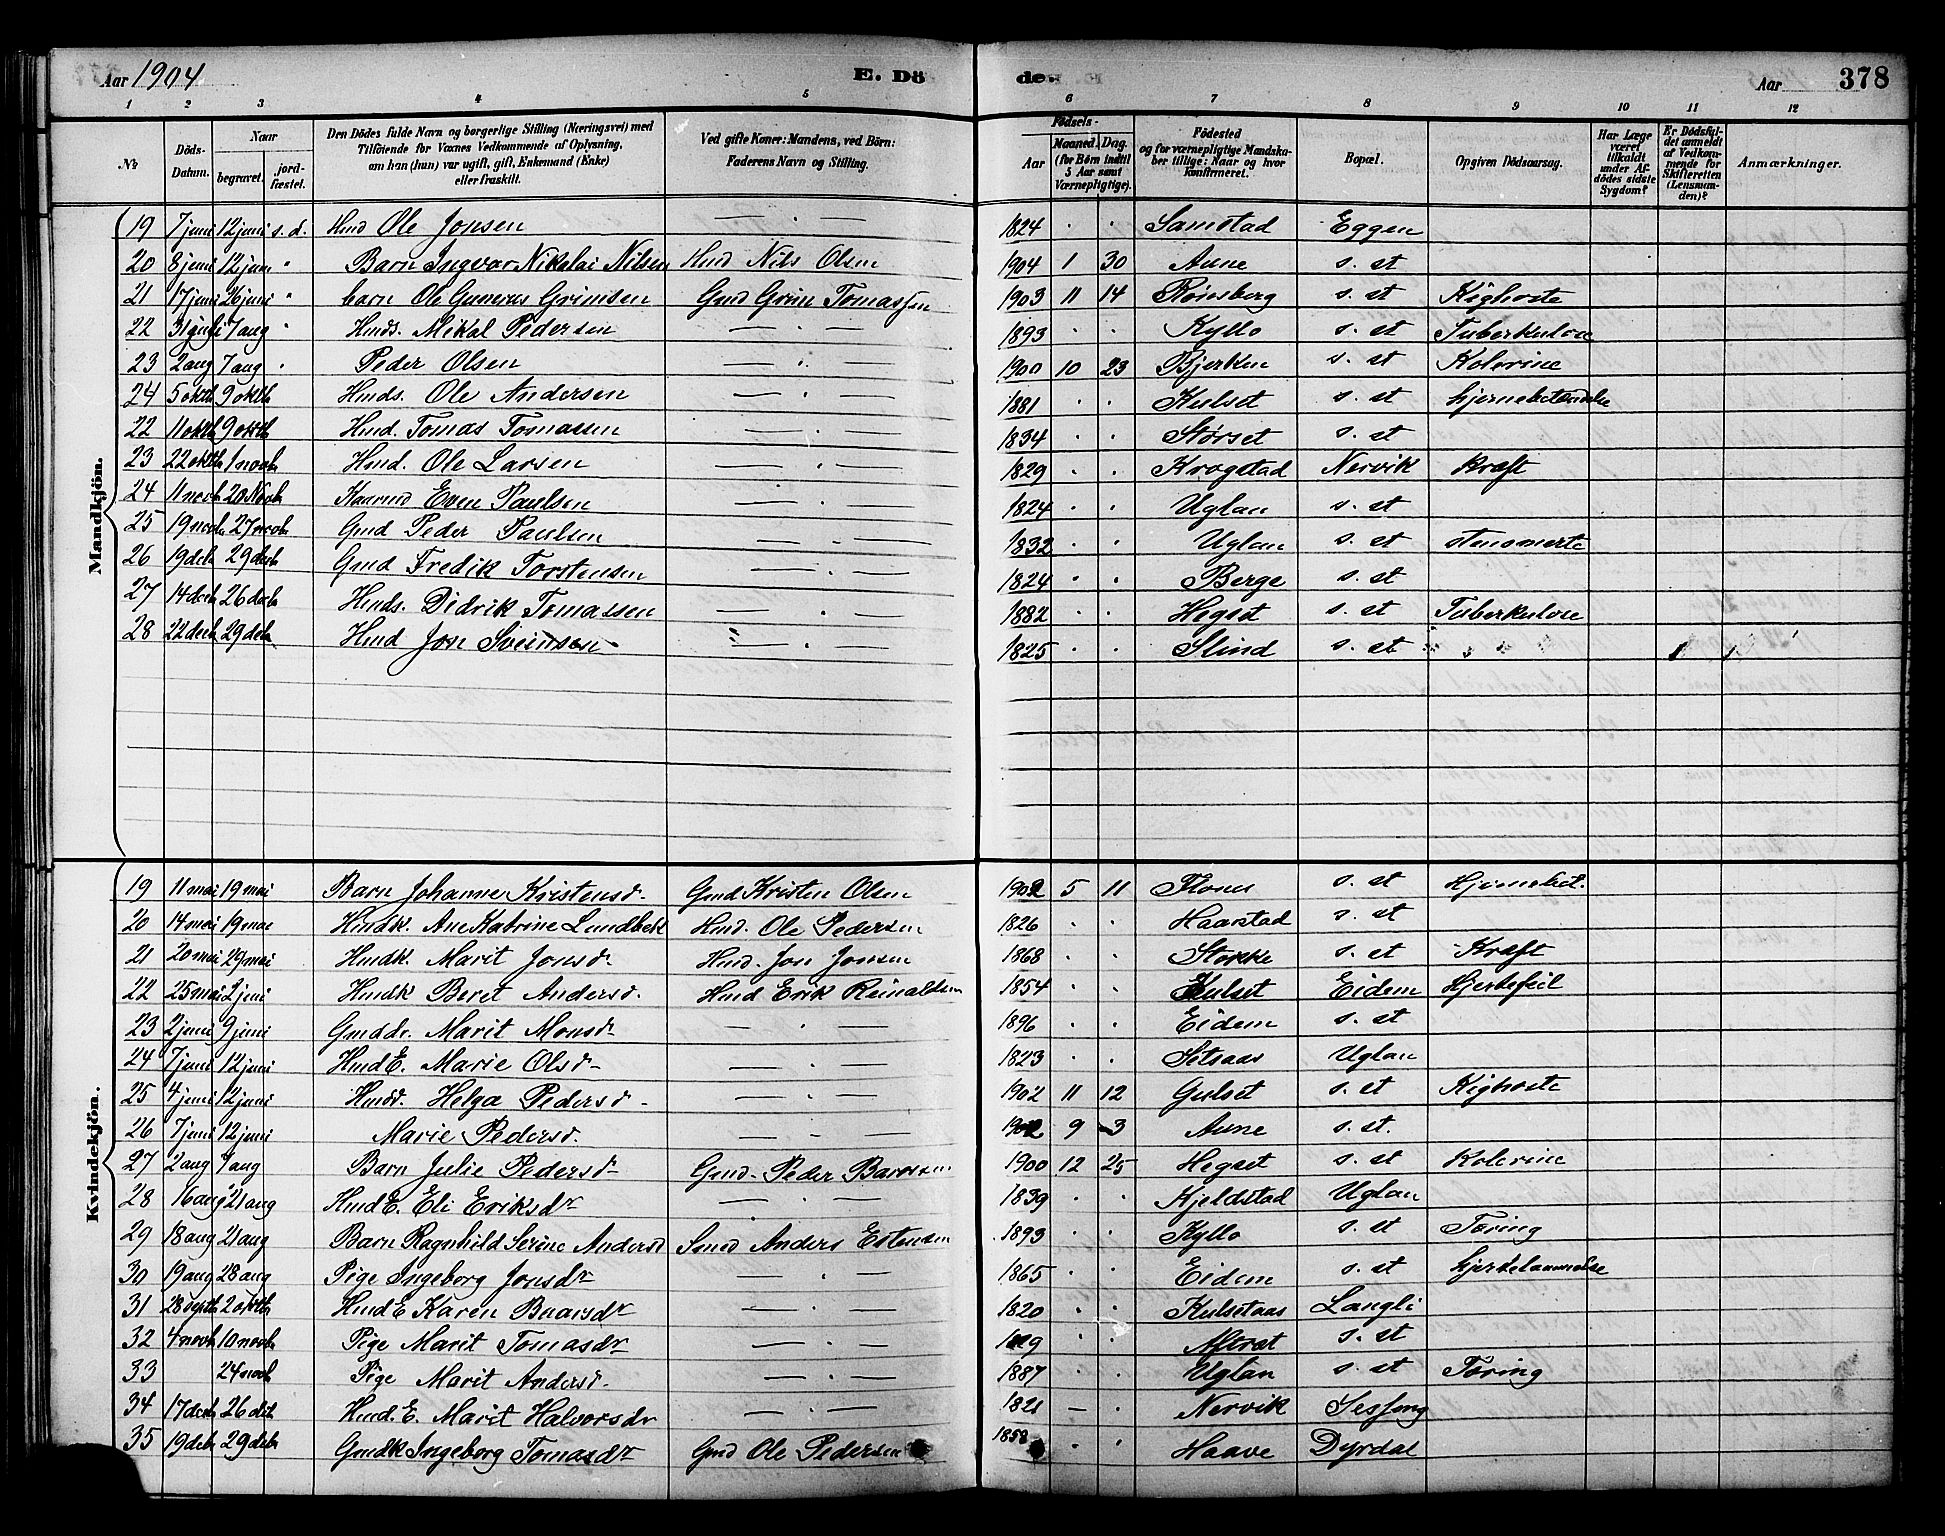 Aar 1904
E. Dö
de.
Aar
378
1 2 3 4 5 6 7 8 9 10 11 12
№
Döds-Datum.
Naar
begravet.
jord-fæstet.
Den Dödes fulde Navn og borgerlige Stilling (Næringsvei) med Tilföiende for Voxnes Vedkommende af Oplysning, om han (hun) var ugift, gift, Enkemand (Enke) eller fraskilt.
Ved gifte Koner: Mandens, ved Börn: Faderens Navn og Stilling.
Födsels-
Aar
Maaned. Dag.
(for Börn indtil 5 Aar samt Værnepligtige).
Födested og for værnepligtige Mandskaber tillige: Naar og hvor konfirmeret.
Bopæl.
Opgiven Dödsaarsag.
Har Læge været tilkaldt under Afdödes sidste Sygdom?
Er Dödsfaldet anmeldt af Vedkommende for Skifteretten (Lensmanden)?
Anmærkninger.
Mandkjön.
19 7 juni 12 juni s. d. Hmd Ole Jonsen — . — 1824 . . Samstad Eggen
20 8 juni 12 juni " Barn Ingvar Nikolai Nilsen Hmd Nils Olsen 1904 1 30 Aune s. st
21 17 juni 26 juni " barn Ole Gunerus Grimsen Gmd Grim Tomassen 1903 11 14 Rönsberg s. st Kighoste
22 31 juli 7 aug " Hmds. Mikal Pedersen — . — 1893 . . Kyllo s. st Tuberkulose
23 2 aug 7 aug " Peder Olsen — . — 1900 10 23 Bjerken s. st Kolerine
24 5 oktb 9 oktb Hmds. Ole Andersen — . — 1881 . . Kulset s. st hjernebetændelse
22 11 oktb 9 oktb Hmd. Tomas Tomassen — . — 1834 . . Störset s. st
23 22 oktb 1 novb Hmd. Ole Larsen — . — 1829 . . Krogstad Nervik Kræft
24 11 novb 20 Novb Kaarmd Even Paulsen — . — 1824 . . Uglan s. st
25 19 novb 27 novb Gmd Peder Paulsen — . — 1832 . . Uglan s. st stensmerte
26 19 decb 29 decb Gmd Fredik Torstensen — . — 1824 . . Berge s. st
27 14 decb 26 decb Hmds. Didrik Tomassen — . — 1882 . . Hegset s. st Tuberkulose
28 22 decb 29 decb Hmd Jon Sveinsen — . — 1825 . . Slind s. st
Kvindekjön.
19 11 mai 19 mai Barn Johanne Kristensdr Gmd Kristen Olsen 1902 5 11 Flones s. st Hjernebet.
20 14 mai 19 mai Hmdk. Ane Katrine Lundbek Hmd. Ole Pedersen 1826 . . Haarstad s. st
21 20 mai 29 mai Hmdk. Marit Jonsdr Hmd. Jon Jonsen 1868 . . Stokke s. st Kræft
22 25 mai 2 juni Hmdk Beret Andersd. Hmd Erik Reinaldsen 1854 . . Kulset Eidem Hjertefeil
23 2 juni 9 juni Gmddr. Marit Monsdr — . — 1896 . . Eidem s. st
24 7 juni 12 juni HmdE. Marie Olsdr — . — 1823 . . Setsaas Uglan
25 4 juni 12 juni Hmdd. Helga Pedersdr — . — 1902 11 12 Gulset s. st Kighoste
26 7 juni 12 juni Marie Pedersd. — . — 1902 9 3 Aune s. st.
27 2 aug 7 aug Barn Julie Pedersdr Gmd. Peder Baarsen 1900 12 25 Hegset s. st Kolerine
28 16 aug 21 aug HmdE. Eli Eriksdr — . — 1839 . . Kjeldstad Uglan
29 18 aug 21 aug Barn Ragnhild Serine Andersd Smed Anders Estensen 1893 . . Kyllo s. st Tæring
30 19 aug 28 aug Pige Ingeborg Jonsdr — . — 1865 . . Eidem s. st hjertelammelse
31 28 septb 2 oktb HmdE Karen Baarsdr — . — 1820 . . Kulsetaas Langli
32 4 novb 10 novb Pige Marit Tomasdr — . — . . Aftret s. st
33 24 novb Pige Marit Andersd. — . — 1887 . . Uglan s. st Tæring
34 17 decb 26 dcb Hmd.E. Marit Halvorsdr — . — 1821 — . Nervik Sesseng
35 19 decb 29 decb Gmdk Ingeborg Tomasdr Gmd Ole Pedersen 1858 . . Haave Dyrdal